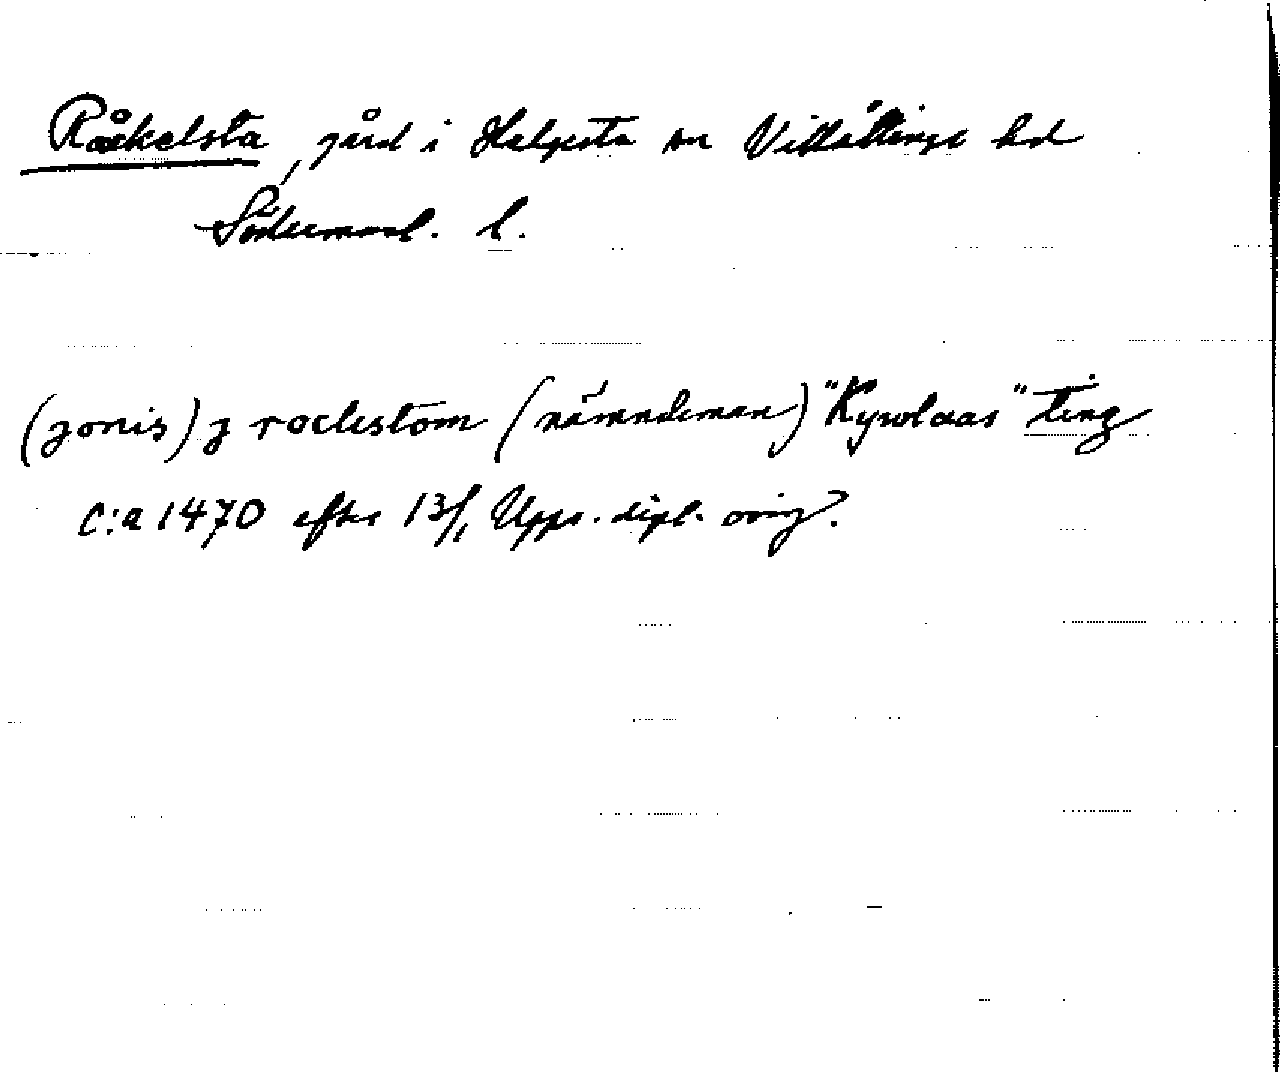 Råckelsta, gård i Helgesta sn Villåttinge hd
Södermanl. l.
(jonis) j roclistom (nämndeman) "Kyrolaas" ting
c:a 1470 efter 13/1 Upps. dipl. orig.